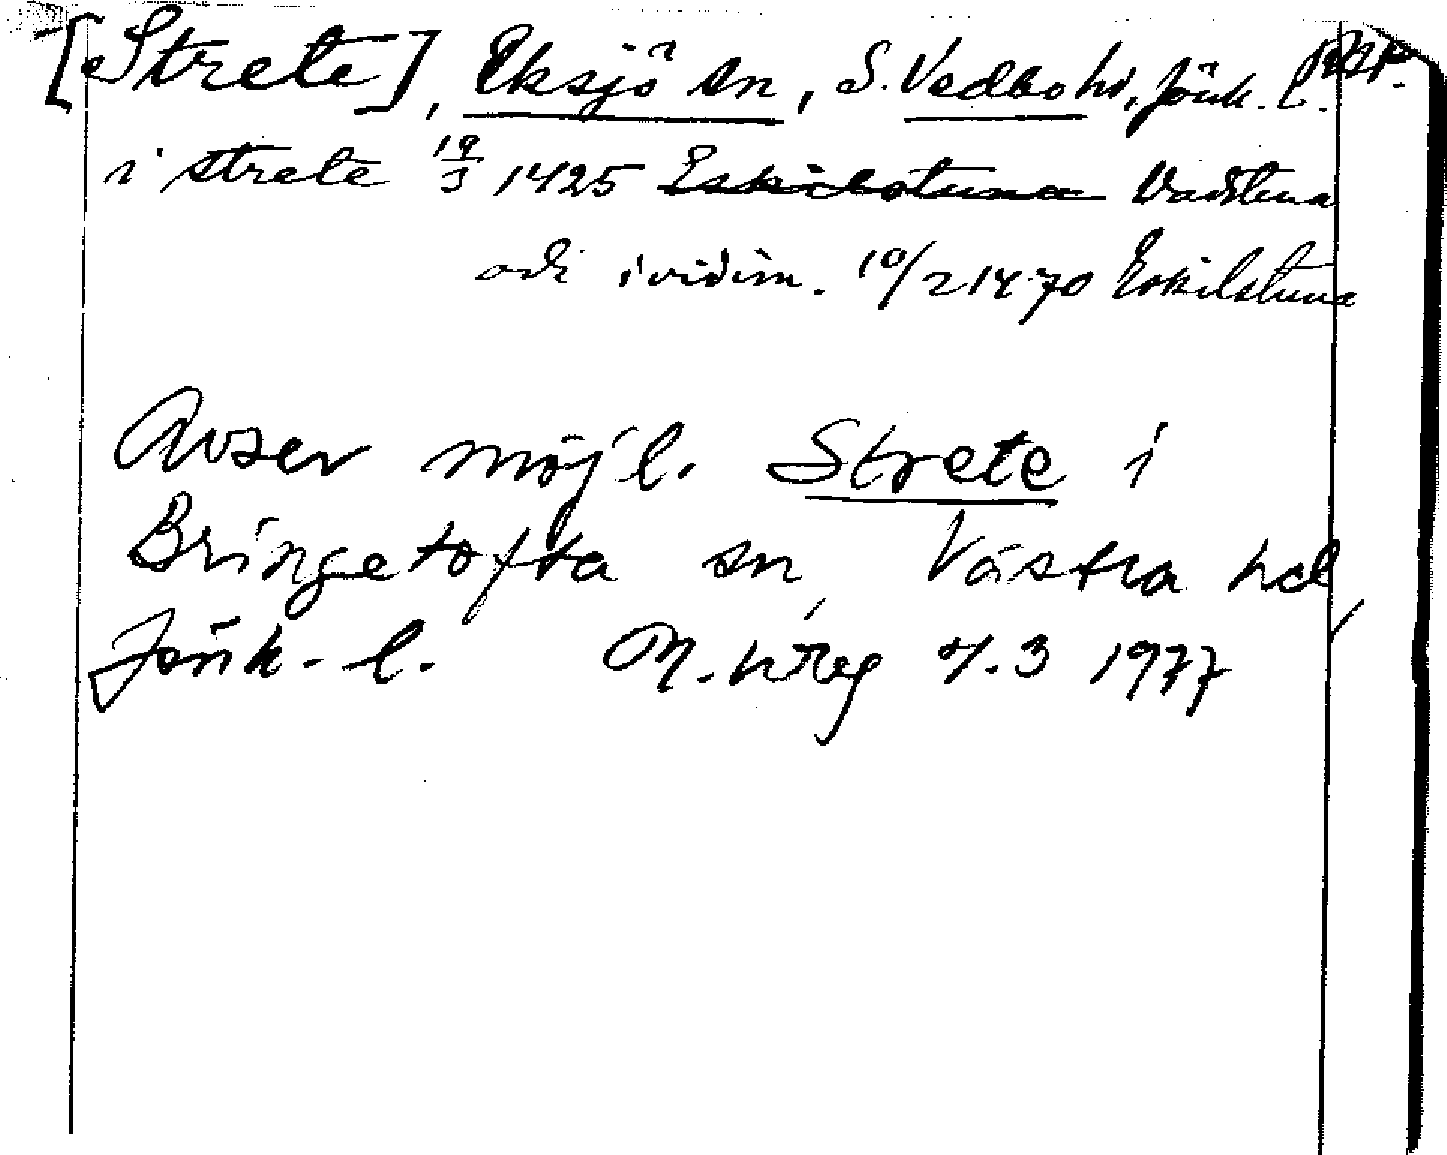 [Strete], Eksjö sn, S. Vedbo hd, Jönk. l.
i strete 19/3 1425 Eskilstuna Vadstena
i vidim. 10/2 1470 Eskilstuna
Avser möjl. Strete i
Bringetofta sn, Västra hd,
Jönk. l. M. 7.3 1977